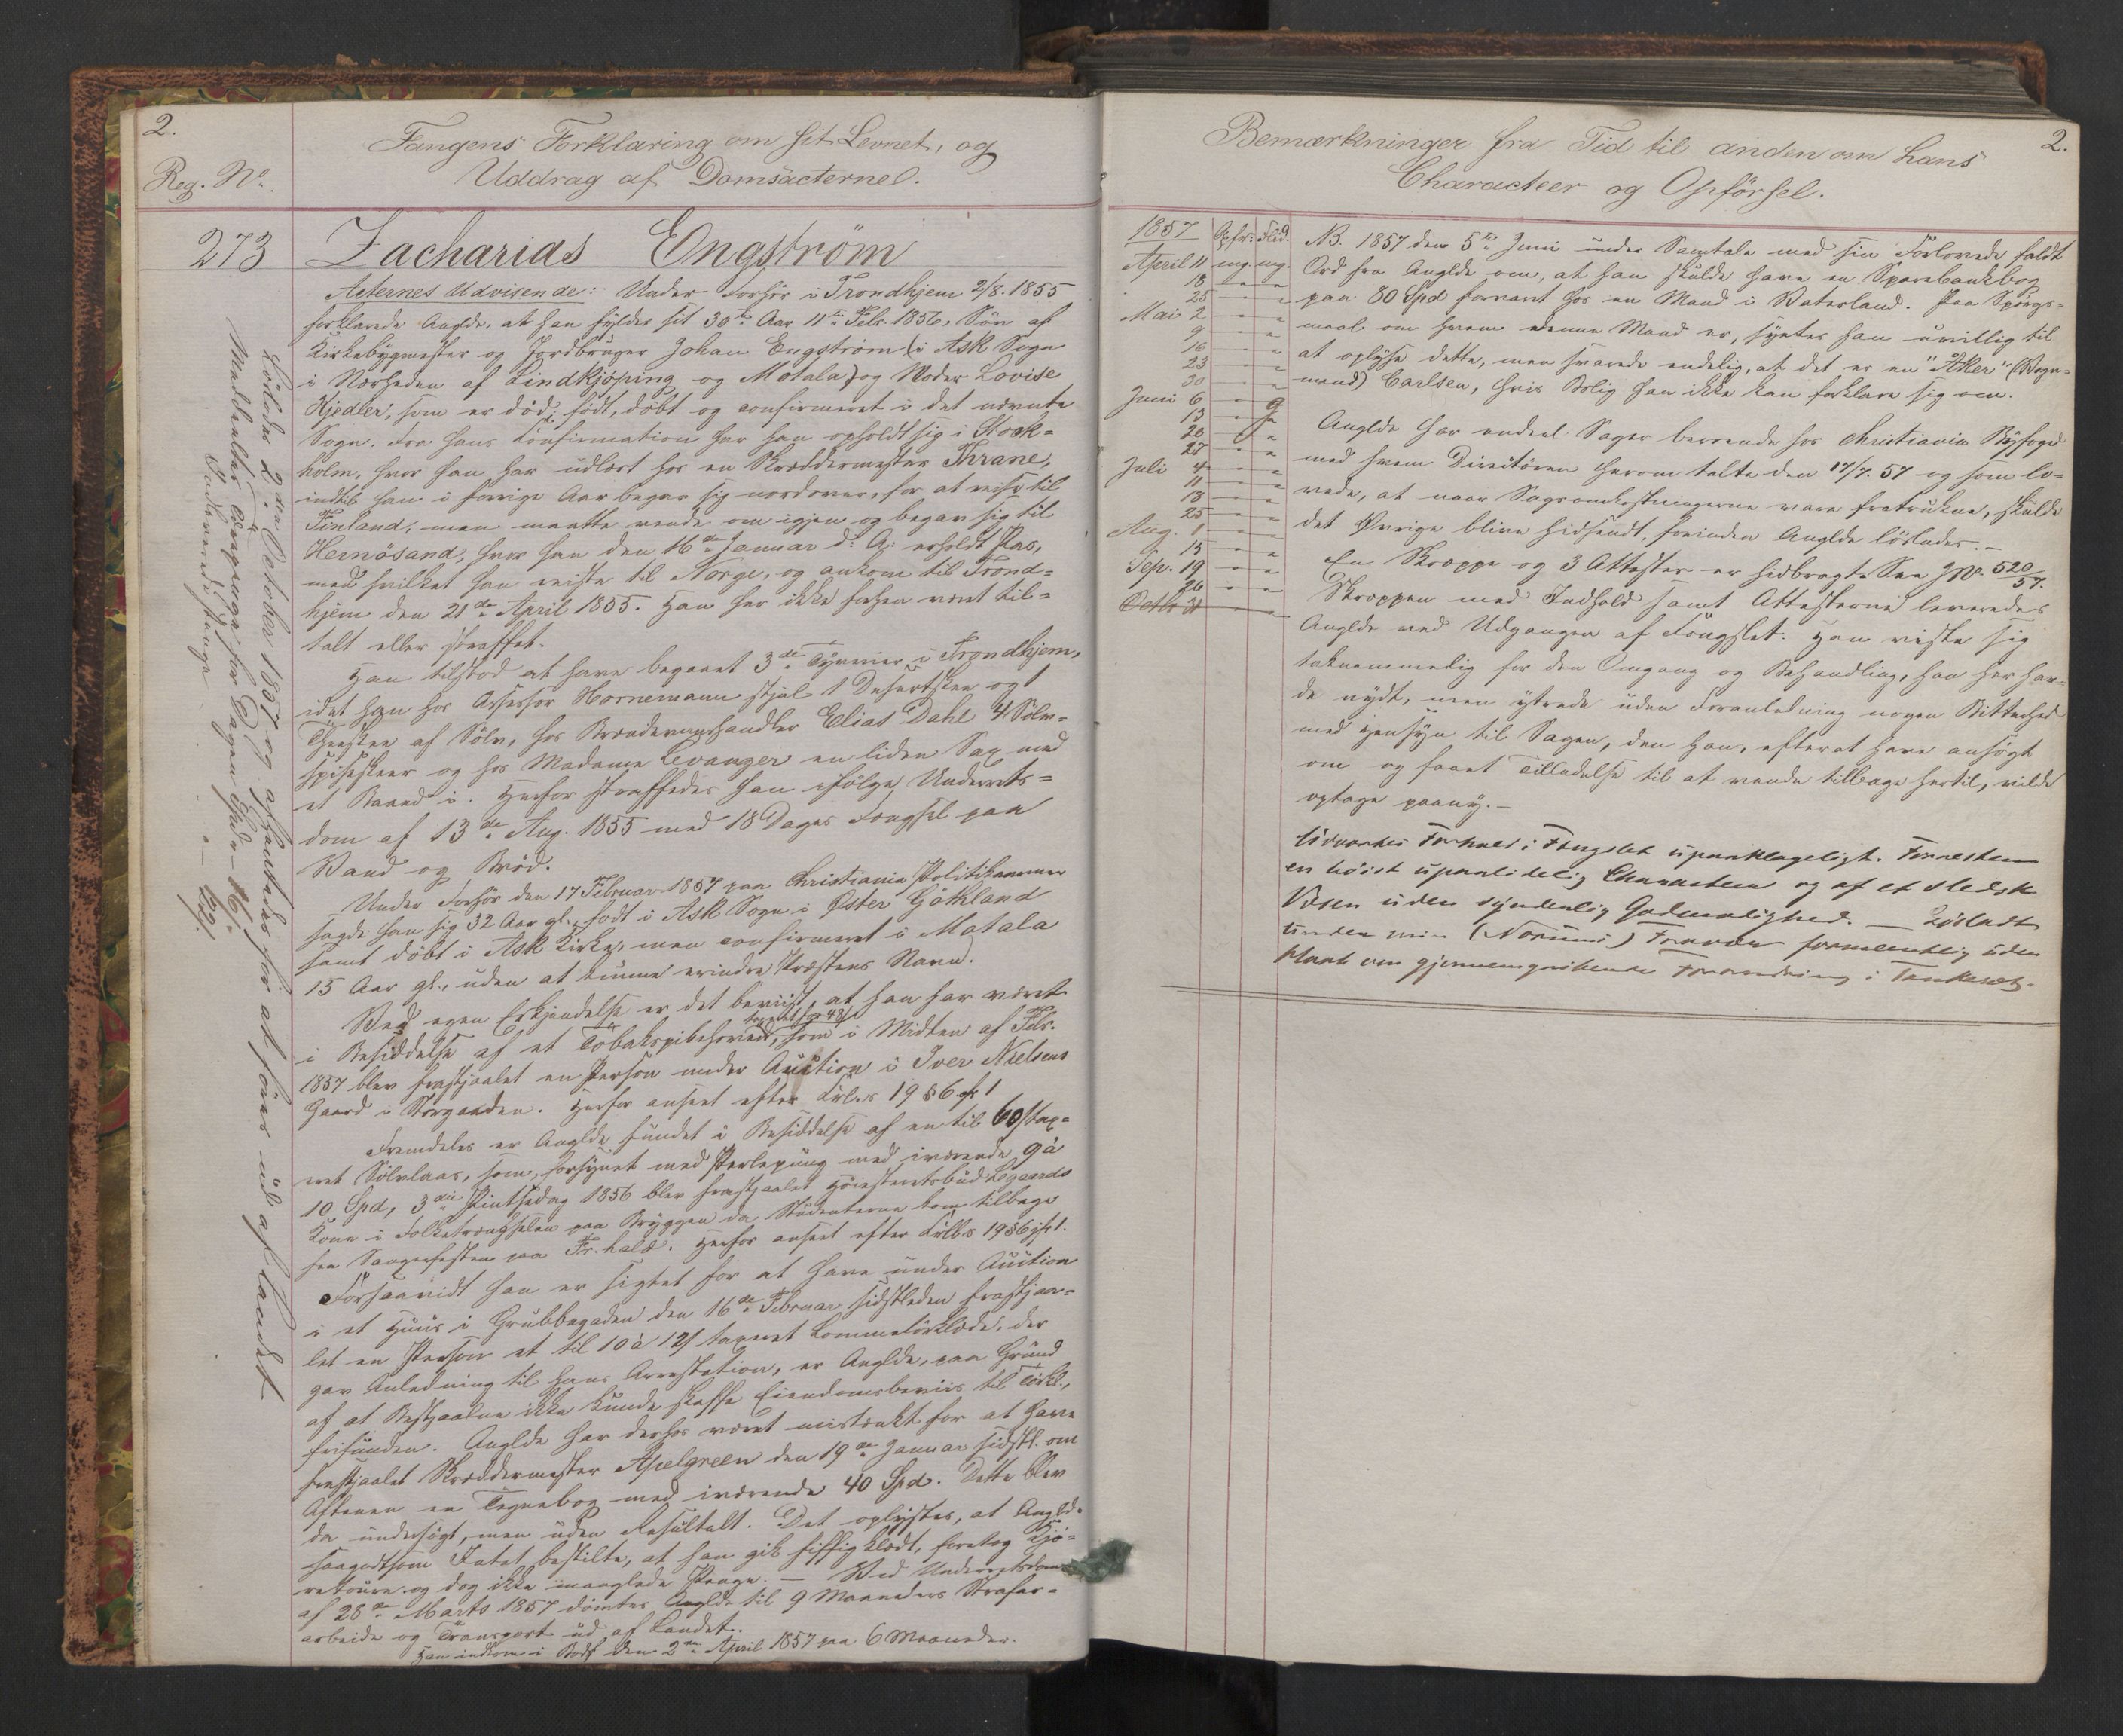 2.
Reg. No.
Fangens Forklaring om sit Levnet, og
Uddrag af Domsacterne.
273
Zacharias Engström
Acternes Udvisende: Under Forhör i Trondhjem 2/8. 1855
forklarede Anglde, at han fyldes sit 30te Aar 11te Febr. 1856, Sön af
Kirkebygmester og Jordbruger Johan Engström (i Ask Sogn
i Nærheden af Lindkjöping og Motala) og Moder Lovise
Hjedler, som er död; født, döbt og confirmeret i det nævnte
Sogn. Fra hans Confirmation har han opholdt sig i Stock=
holm, hvor han har udlært hos en Skræddermester Thrane,
indtil han i forrige Aar begav sig nordover, for at reise til
Finland, men maatte vende om igjen og begav sig til
Hernösand, hvor han den 16de Januar d: A: erholdt Pas,
med hvilket han reiste til Norge, og ankom til Trond=
hjem den 21de April 1855. Han har ikke forhen været til=
talt eller straffet.
Han tilstod at have begaaet 3de Tyverier i Trondhjem,
idet han hos Assessor Hornemann stjal 1 Desertskee og 1
Theeskee af Sölv, hos Brændeviinshandler Elias Dahl 4 Sölv=
spiseskeer og hos Madame Levanger en liden Sax med
et Baand i. Herfor straffedes han ifölge Underrets=
dom af 13de Aug. 1855 med 18 Dages Fængsel paa
Vand og Bröd.
Under Forhör den 17 Februar 1857 paa Christiania Politikammer
sagde han sig 32 Aar gl., født i Ask Sogn i Öster Göthland
samt döbt i Ask Kirke, men confirmeret i Motala
15 Aar gl., uden at kunne erindre Præstens Navn.
Ved egen Erkjendelse er det beviist, at han har været
i Besiddelse af et Tobakspibehoved, taxeret for 48 s som i Midten af Febr.
1857 blev frastjaalet en Person under Auction i Iver Nielsens
Gaard i Storgaden. Herfor anseet efter Crlvs 19 § 6
Fremdeles er Anglde fundet i Besiddelse af en til 60 s tax=
eret Sölvlaas, som, forsynet med Perlepung med iværende 9 à
10 Spd, 3die Pintsedag 1856 blev frastjaalet Höiesteretsbud
Kone i Folketrængselen paa Bryggen da Studenterne kom tilbage
fra Sangerfesten paa Fr.hald. Herfor anseet efter Crlvs 19 § 6
Forsaavidt han er sigtet for at have under Auction
i et Huus i Grubbegaden den 16de Februar sidstleden frastjaa=
let en Person et til 10 à 12 s taxeret Lommetörklæde, der
gav Anledning til hans Arrestation, er Anglde, paa Grund
af at Bestjaalne ikke kunde skaffe Eiendomsbeviis til Törkl.,
frifunden. Anglde har derhos været mistænkt for at have
frastjaalet Skræddermester Apelgreen den 19de Januar sidstl. om
Aftenen en Tegnebog med iværende 40 Spd. Dette blev
da undersögt, men uden Resultat. Det oplystes, at Anglde
saagodtsom Intet bestilte, at han gik fiffig klædt, foretog Kjö=
retoure og dog ikke manglede Penge. – Ved Underretsdom
af 28de Marts 1857 dömtes Anglde til 9 Maaneders Strafar=
arbeide og Transport ud af Landet.
Han indkom i Bodsf. den 2den April 1857 paa 6 Maaneder.
Lösledes 2den October 1857 og afhentedes for at föres ud af Landet.
Bemærkninger fra Tid til anden om hans
Characteer og Opförsel.
2.
1857 Opfr: Flid.
April 11 mg. mg.
18 " "
25 " "
Mai 2 " "
9 " "
16 " "
23 " "
30 " "
Juni 6 " g
13 "
20 " "
27 " "
Juli 4 " "
11 " "
18 " "
25 " "
Aug. 1 " "
15 " "
Sep. 19 " "
26 " "
Octbr 31
NB. 1857 den 5te Juni under Samtale med sin Forlovede faldt
Ord fra Anglde om, at han skulde have en Sparebankbog
paa 80 Spd forvaret hos en Mand i Vaterland. Paa Spörgs=
maal om hvem denne Mand er, syntes han uvillig til
at oplyse dette, men svarede endelig, at det er en "Åker" (Vogn=
mand) Carlsen, hvis Bolig han ikke kan forklare sig om.
Anglde har endeel Sager beroende hos Christiania Byfoged
med hvem Directören herom talte den 17/7. 57 og som lo=
vede, at naar Sagsomkostningerne vare fratrukne, skulde
det Øvrige blive hidsendt, forinden Anglde lösledes. –
En Skreppe og 3 Attester er hidbragt. See No. 520/57.
Skreppen med Indhold samt Attesterne leveredes
Anglde ved Udgangen af Fængslet. Han viste sig
taknemmelig for den Omgang og Behandling, han her hav=
de nydt, men ytrede uden Foranledning nogen Bitterhed
med Hensyn til Sagen, den han, efterat have ansögt
om og faaet Tilladelse til at vende tilbage hertil, vilde
optage paany. –
Udvortes Forhold i Fængslet upaaklageligt. Forresten
en höist upaalidelig Characteer og af et sledsk
Væsen uden synderlig Godmodighed. – Lösladt
uden formeentlig uden
gjennemgribende Forandring i Tænkesæt.